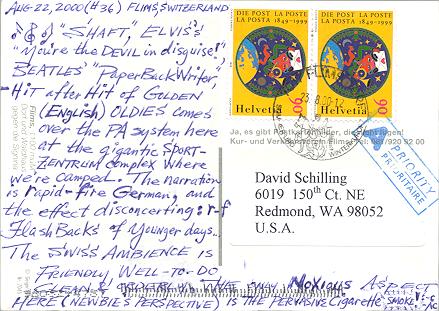 AUG-22, 2000 (#36) FLIMS, SWITZERLAND
"SHAFT," ELVIS's
"You're the DEVIL in disguise!",
BEATLES' "PaperBackWriter,"
Hit after Hit of GOLDEN
(English) OLDIES comes
over the PA system here
at the gigantic SPORT-
ZENTRUM complex where
we're camped. The narration
is rapid-fire German, and
the effect disconcerting: r-f
FlashBacks of Younger days...
The SWISS AMBIENCE is
FRIENDLY, WELL-TO-DO,
CLEAN & THE ONLY NOXIOUS ASPECT
HERE (NEWBIE'S PERSPECTIVE) IS THE PERVASIVE Cigarette SMOKE
DIE POST LA POSTE
LA POSTA 1849-1999
Helvetia 90
DIE POST LA POSTE
LA POSTA 1849-1999
Helvetia 90
Ja, es gibt Postkartenbilder, die
Kur- und Verkehrsverein Flims
PRIORITY
PRIORITAIRE
David Schilling
6019 150th Ct. NE
Redmond, WA 98052
U.S.A.